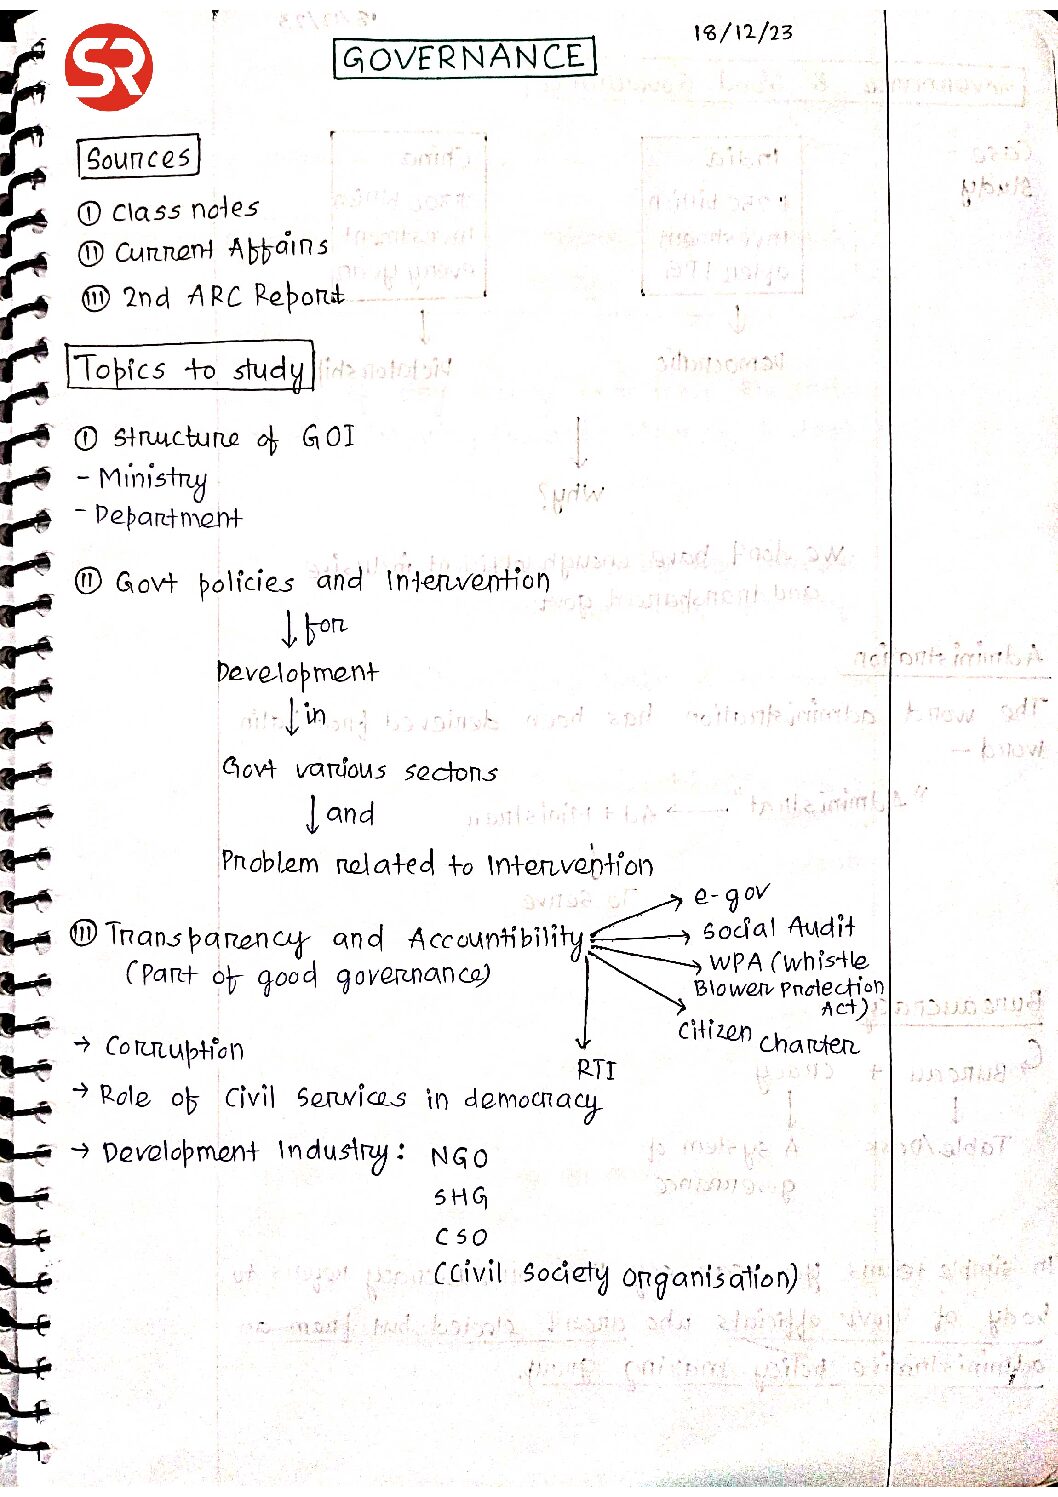 SR
18/12/23
GOVERNANCE
Sources
I Class notes
II Current Affairs
III 2nd ARC Report
Topics to study
I Structure of GOI
- Ministry
- Department
II Govt policies and Intervention
↓ for
Development
↓ in
Govt various sectors
↓ and
Problem related to Intervention
III Transparency and Accountibility
(Part of good governance)
→ e-gov
→ Social Audit
→ WPA (Whistle
Blower Protection
Act)
→ Citizen Charter
↓
RTI
→ Corruption
→ Role of Civil Services in democracy
→ Development Industry: NGO
SHG
CSO
(Civil Society Organisation)